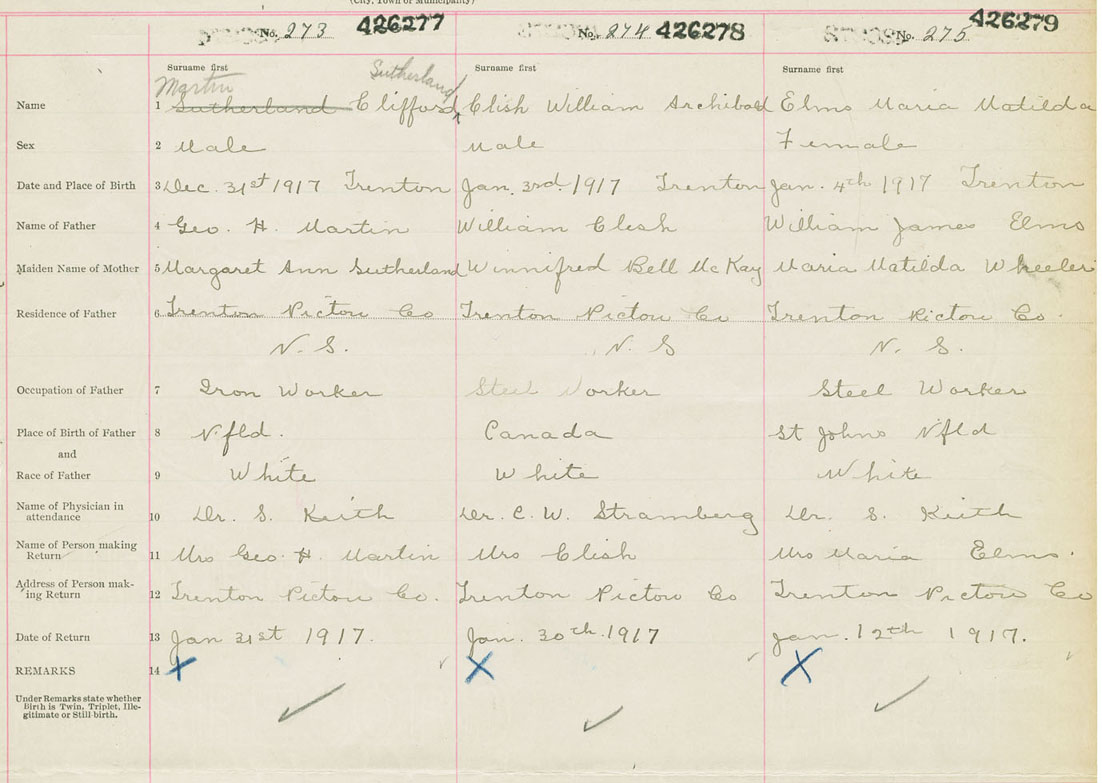 (City, Town or Municipality)
No. 273 426277 No. 274 426278 No. 275 426279
Surname first Surname first Surname first
Martin Sutherland
Name 1 Sutherland Clifford Clish William Archibald Elms Maria Matilda
Sex 2 Male Male Female
Date and Place of Birth 3 Dec. 31st 1917 Trenton Jan. 3rd 1917 Trenton Jan. 4th 1917 Trenton
Name of Father 4 Geo. H. Martin William Clish William James Elms
Maiden Name of Mother 5 Margaret Ann Sutherland Winnifred Bell McKay Maria Matilda Wheeler
Residence of Father 6 Trenton Pictou Co Trenton Pictou Co Trenton Pictou Co.
N. S. N. S N. S.
Occupation of Father 7 Iron Worker Steel Worker Steel Worker
Place of Birth of Father 8 Nfld. Canada St Johns Nfld
and
Race of Father 9 White White White
Name of Physician in
attendance 10 Dr. S. Keith Dr. C. W. Stramberg Dr. S. Keith
Name of Person making
Return 11 Mrs Geo. H. Martin Mrs Clish Mrs Maria Elms.
Address of Person mak-
ing Return 12 Trenton Pictou Co. Trenton Pictou Co Trenton Pictou Co
Date of Return 13 Jan 31st 1917. Jan. 30th 1917 Jan. 12th 1917.
REMARKS 14 X X X
Under Remarks state whether
Birth is Twin, Triplet, Ille-
gitimate or Still-birth.